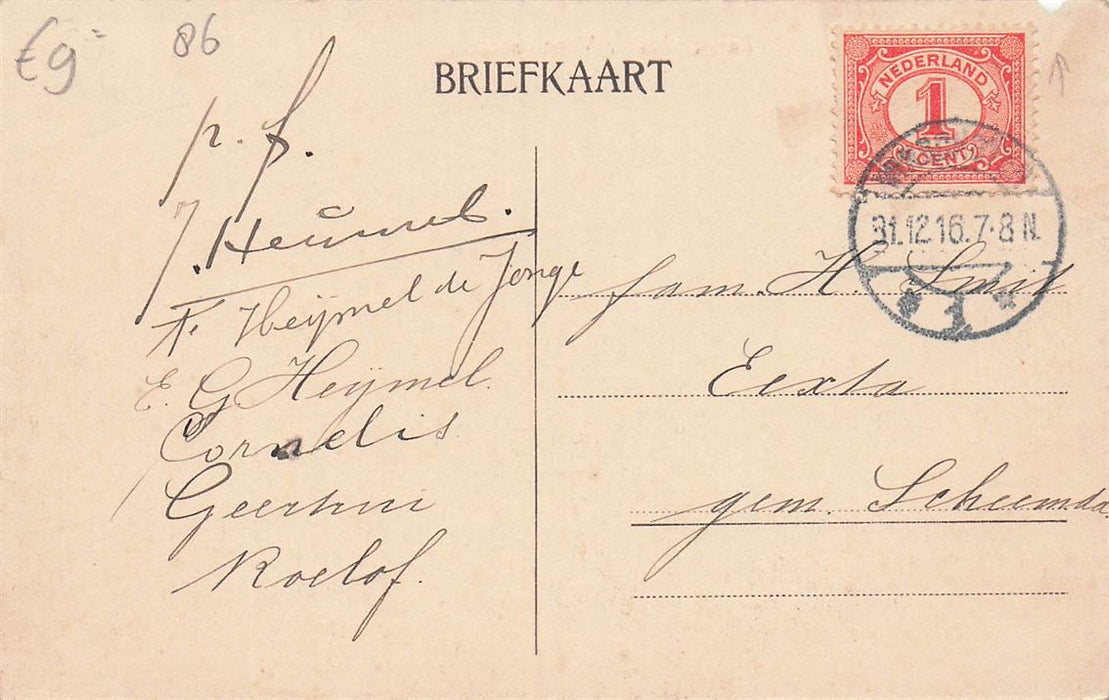 €9=
86
BRIEFKAART
NEDERLAND
1
CENT
31.12.16.7-8 N.
1
p. f.
J. Heümel.
F. Heijmel de Jonge
E. G. Heijmel.
Cornelis
Geertrui
Roelof.
fam. H Smit
Eexta
gem. Scheemda